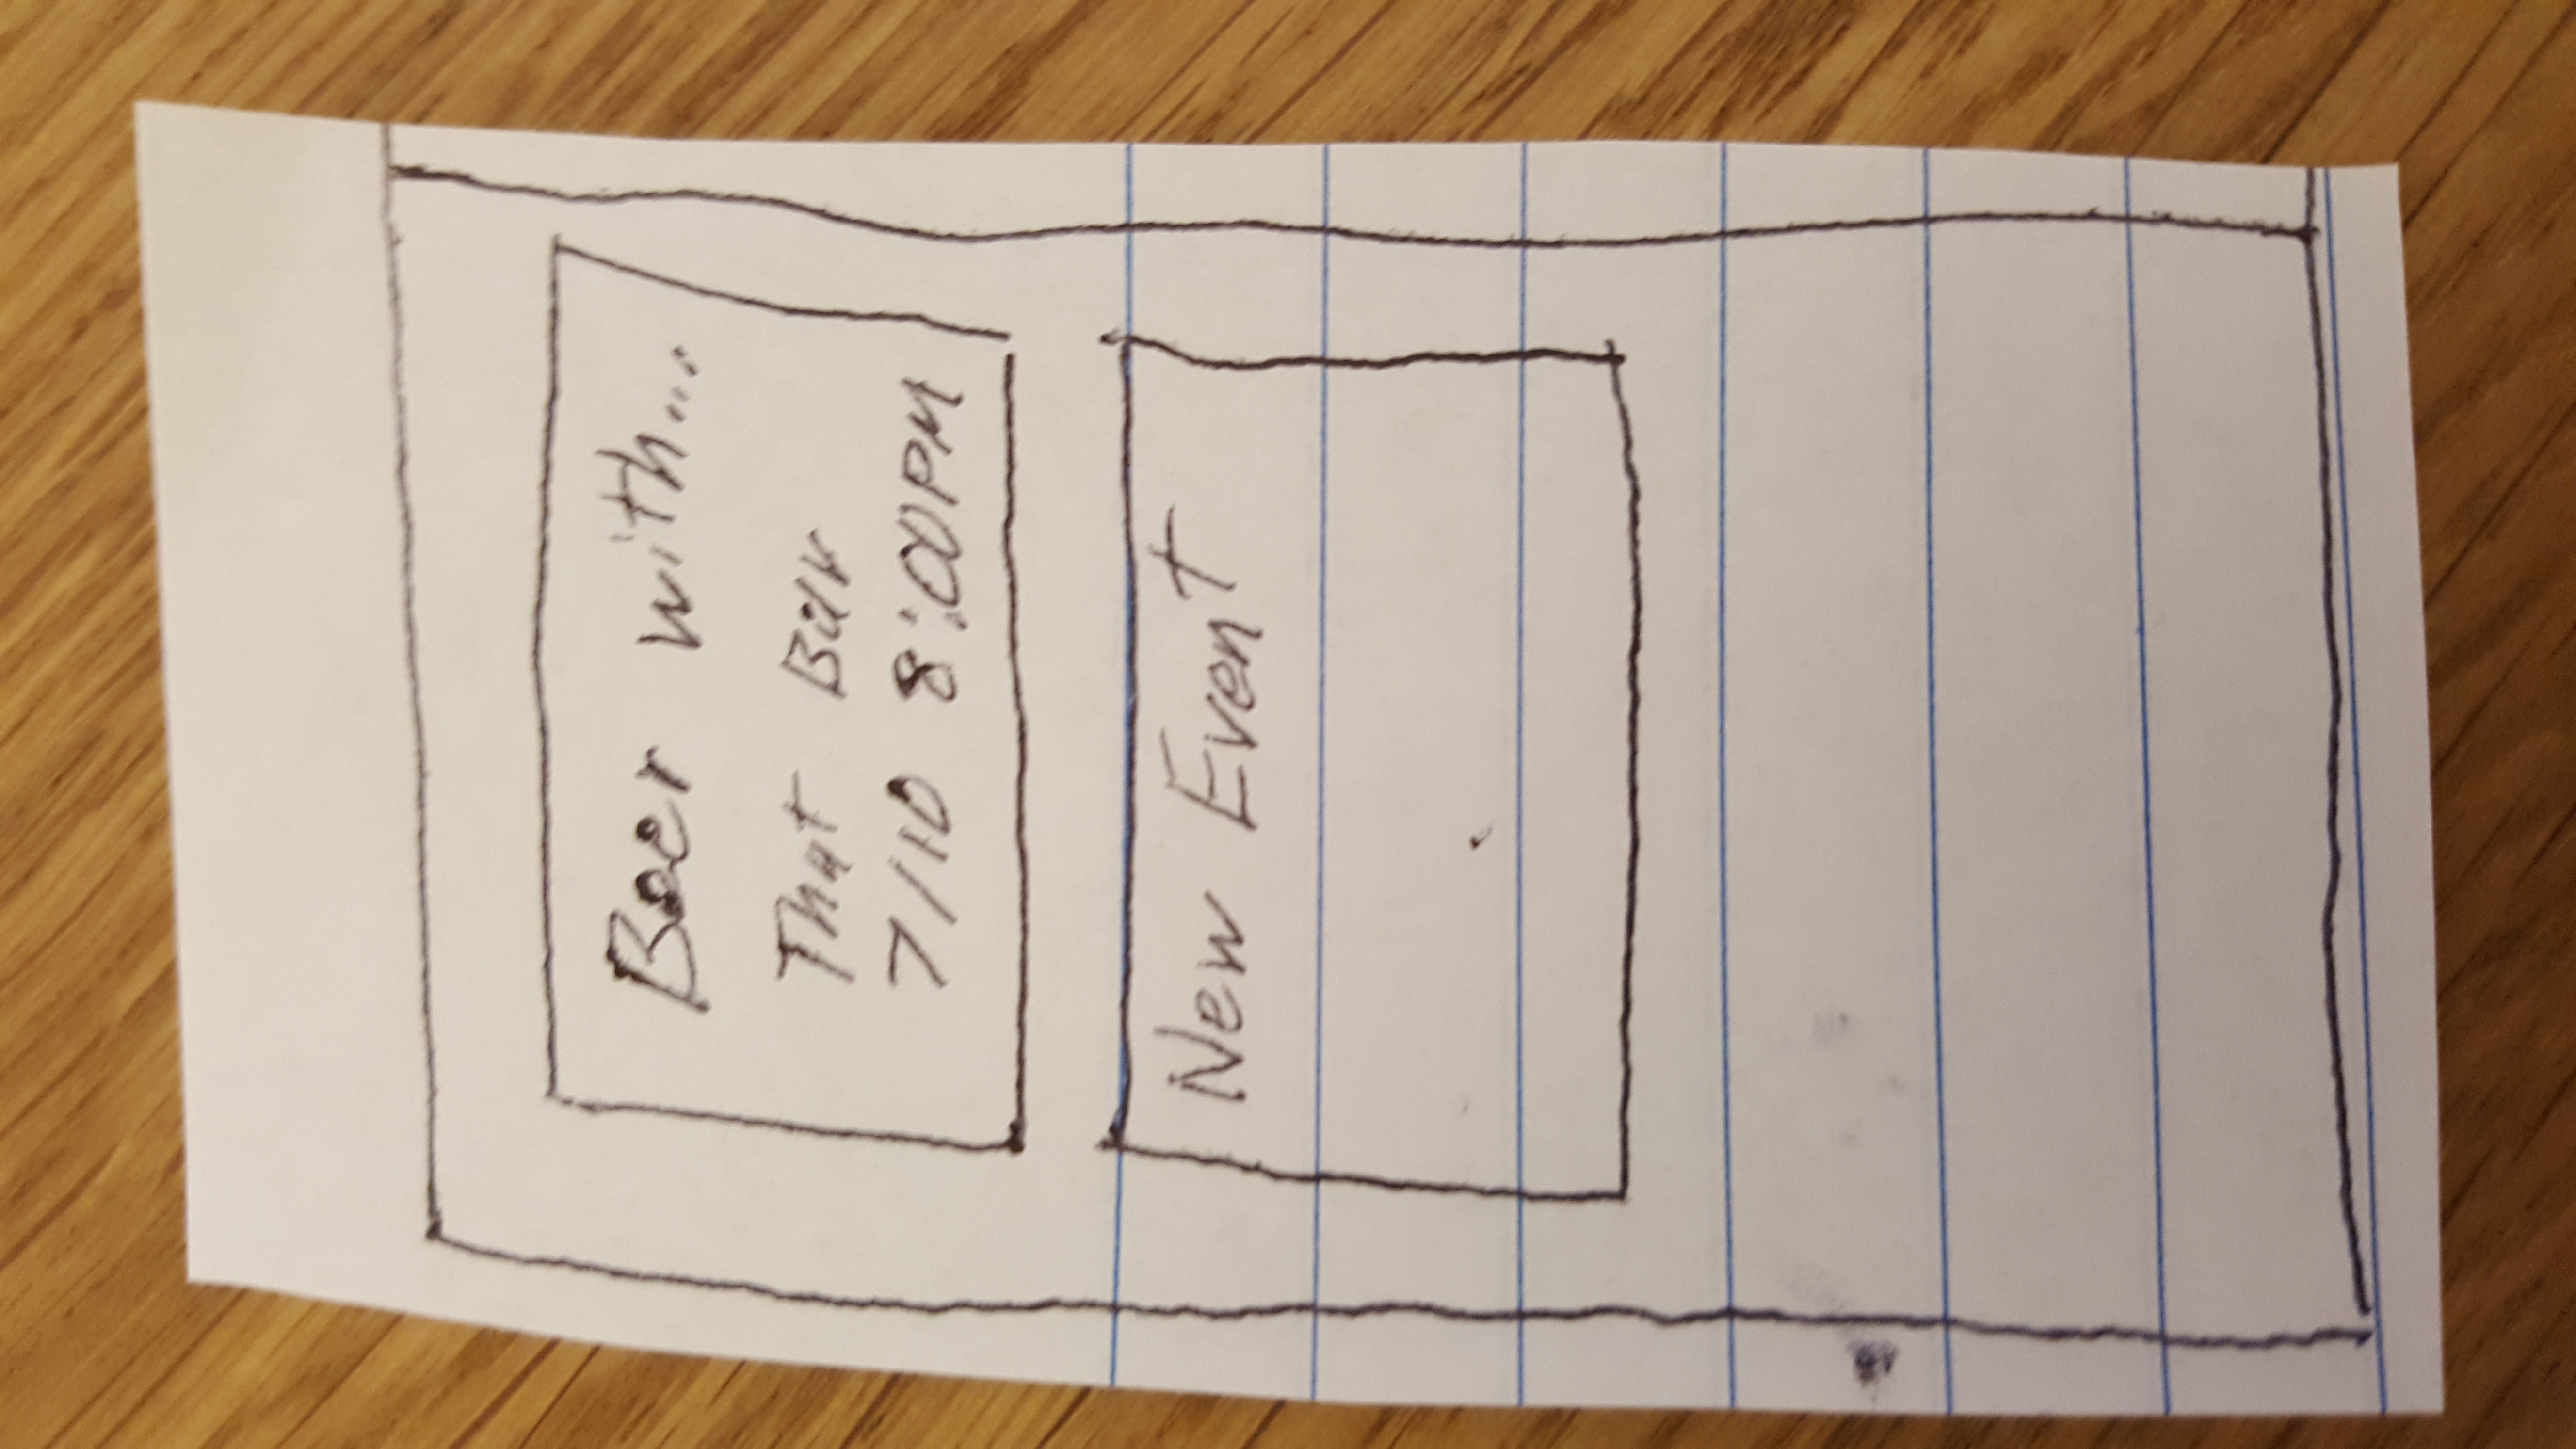 Beer with...
That Bar
7/10 8:00PM
New Event